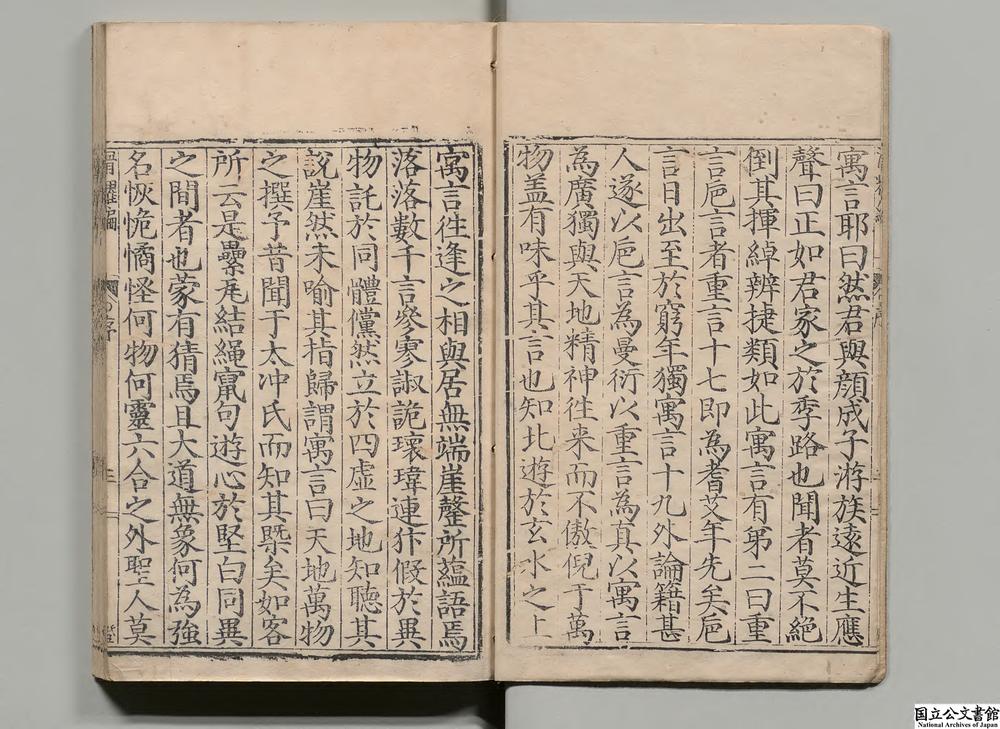 寓言耶曰然君與顔成子游族遠近生應
聲曰正如君家之於季路也聞者莫不絶
倒其揮綽辨捷類如此寓言有第二曰重
言巵言者重言十七即為耆艾年先矣巵
言日出至於窮年獨寓言十九外論籍甚
人遂以巵言為曼衍以重言為真以寓言
為廣獨與天地精神徃来而不傲倪于萬
物盖有味乎其言也知北遊於玄水之上
寓言徃逢之相與居無端崖罄所蘊語焉
落落數千言參寥諔詭瓌瑋連犿假於異
物託於同體儻然立於四虚之地知聽其
說崖然未喻其指歸謂寓言曰天地萬物
之撰予昔聞于太冲氏而知其槩矣如客
所云是纍尾結繩竄句遊心於堅白同異
之間者也蒙有猜焉且大道無象何為強
名恢恑憰怪何物何靈六合之外聖人莫
序
三
国立公文書館
National Archives of Japan